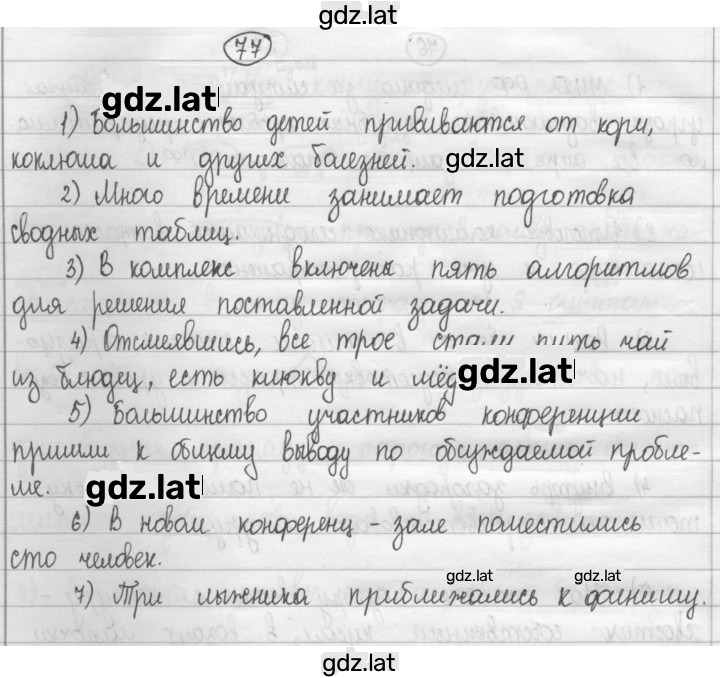 gdz.lat
77
gdz.lat
1) Большинство детей прививаются от кори,
коклюша и других болезней. gdz.lat
2) Много времени занимает подготовка
сводных таблиц.
3) В комплекс включены пять алгоритмов
для решения поставленной задачи.
4) Отсмеявшись, все трое стали пить чай
из блюдец, есть клюкву и мёд gdz.lat
5) Большинство участников конференции
пришли к общему выводу по обсуждаемой пробле-
ме. gdz.lat
6) В новом конференц-зале поместились
сто человек.
gdz.lat gdz.lat
7) Три лыжника приближались к финишу.
gdz.lat